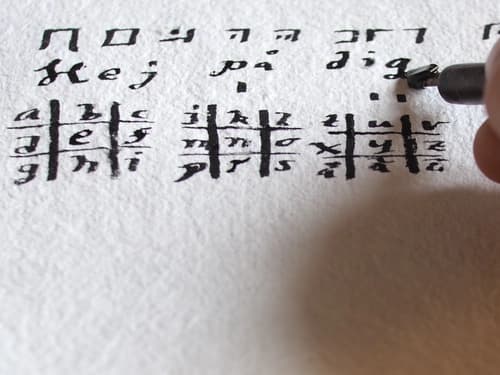 Hej på dig
a b c j k l t u v
d e f m n o x y z
g h i p r s å ä ö